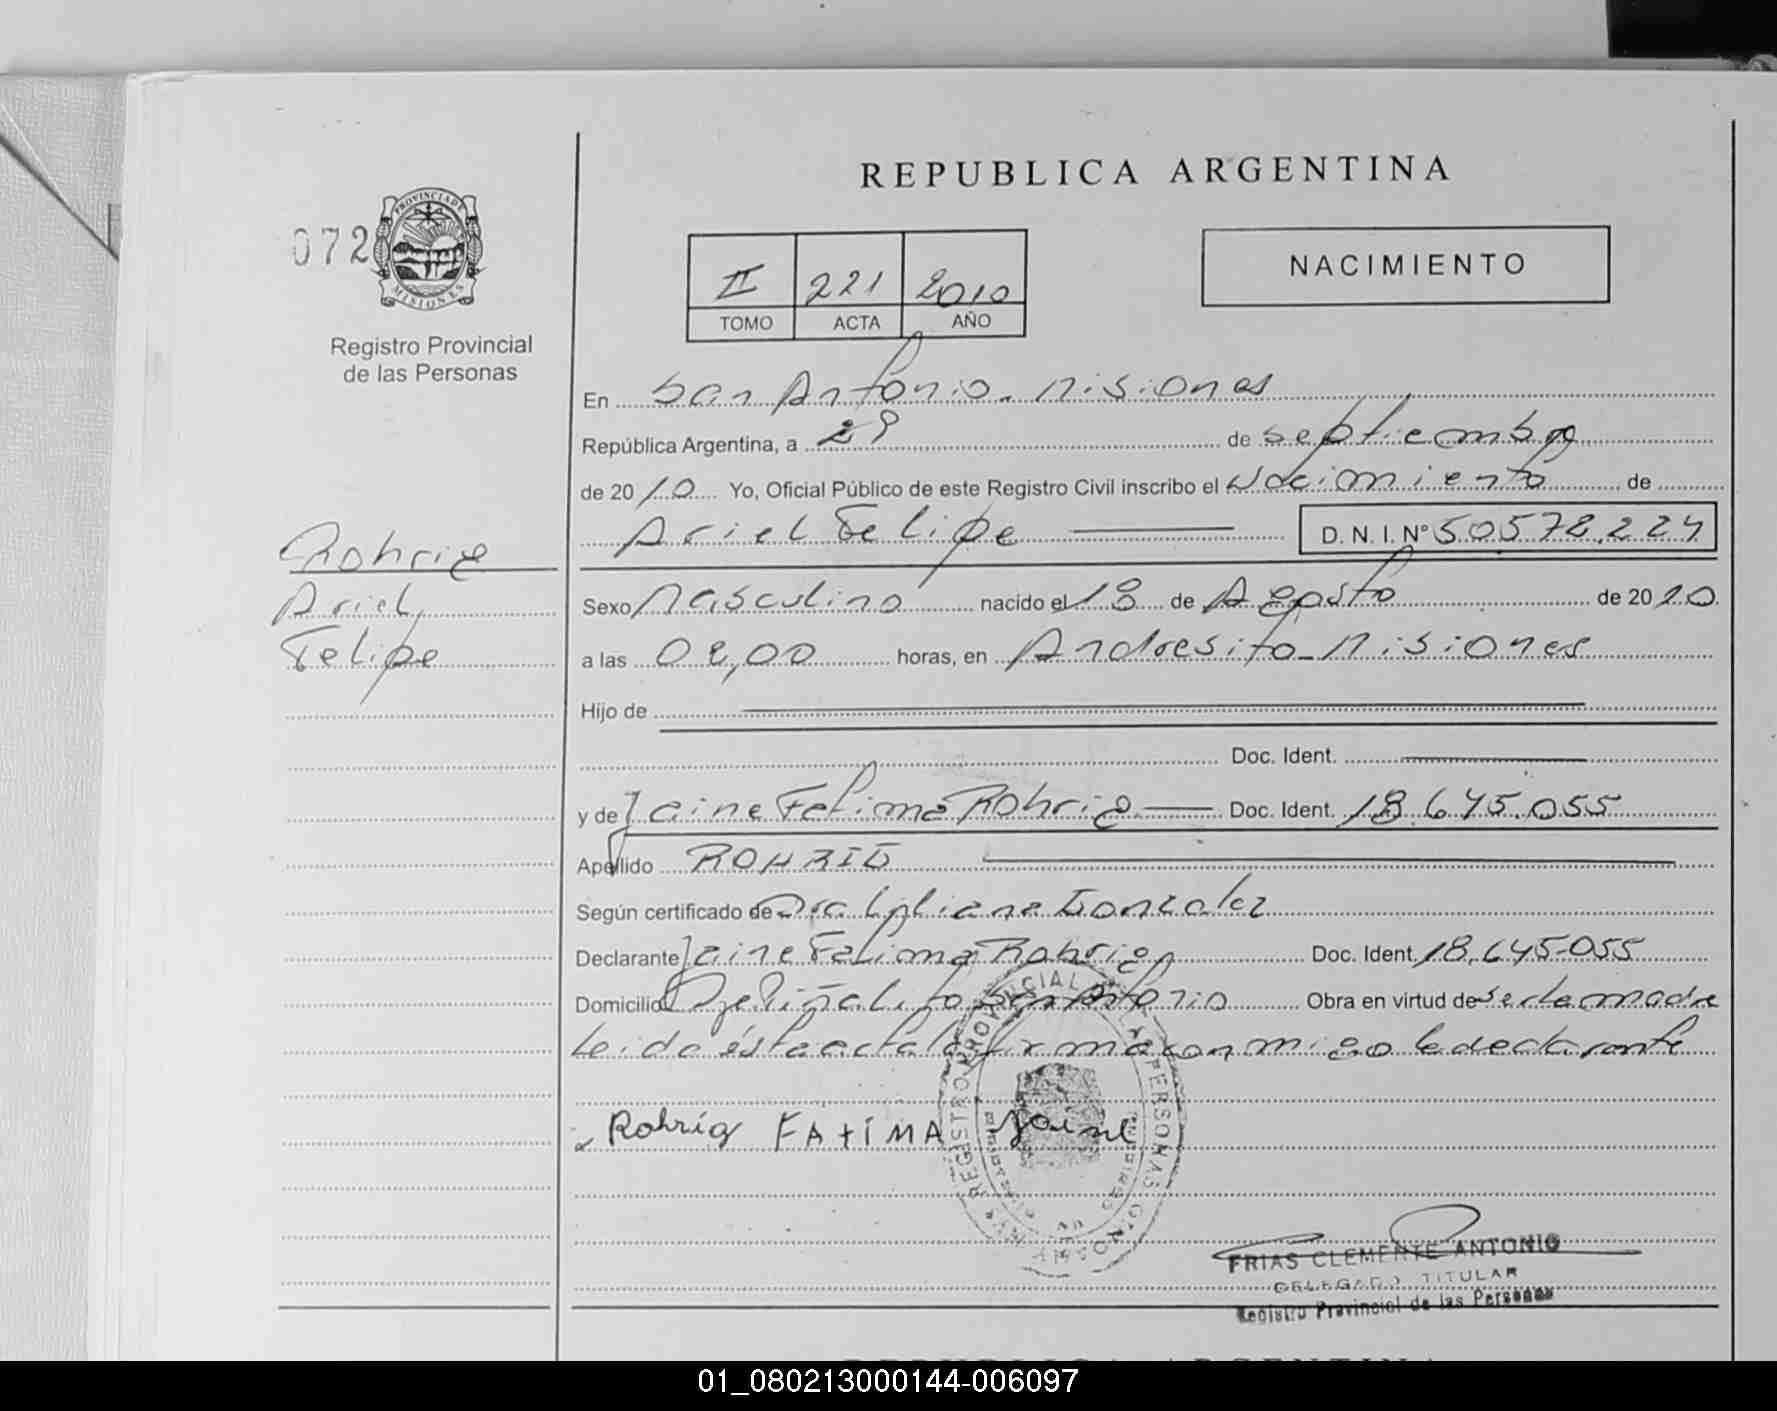 REPUBLICA ARGENTINA
072
PROVINCIA DE MISIONES
Registro Provincial
de las Personas
II 221 2010
TOMO ACTA AÑO
NACIMIENTO
En San Antonio - Misiones
República Argentina, a 29 de septiembre
de 2010 Yo, Oficial Público de este Registro Civil inscribo el Nacimiento de
Ariel Felipe D. N. I. Nº 50578.224
Rohrig
Ariel
Felipe
Sexo Masculino nacido el 18 de Agosto de 2010
a las horas, en Andresito - Misiones
Hijo de
Doc. Ident.
y de Jaine Fatima Rohrig Doc. Ident. 18.645.055
Apellido ROHRIG
Según certificado de Dra Liliana Gonzalez
Declarante Jaine Fatima Rohrig Doc. Ident. 18.645.055
Domicilio Piñalito San Antonio Obra en virtud de ser la madre
Leida ésta acta la firma conmigo la declarante
Rohrig FAtIMA Jaine
REGISTRO PROVINCIAL PERSONAS
FRIAS CLEMENTE ANTONIO
DELEGADO TITULAR
Registro Provincial de las Personas
REPUBLICA ARGENTINA
01_080213000144-006097